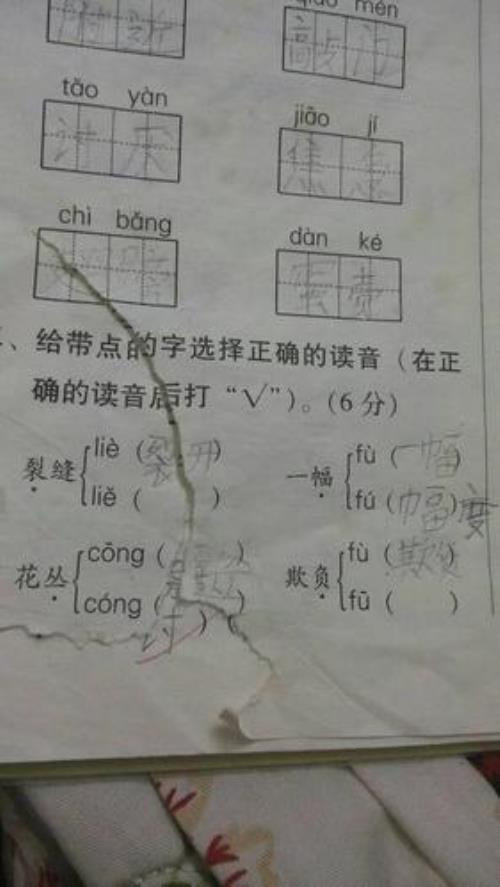 qiāo mén
敲 门
tǎo yàn
讨 厌
jiāo jí
焦 急
chì bǎng
dàn ké
蛋 壳
、给带点的字选择正确的读音（在正
确的读音后打“√”）。(6分)
裂缝 liè (裂开)
liě ( )
一幅 fù (一幅)
fú (幅度)
花丛 cōng ( )
cóng ( )
欺负 fù (欺负)
fū ( )
讨